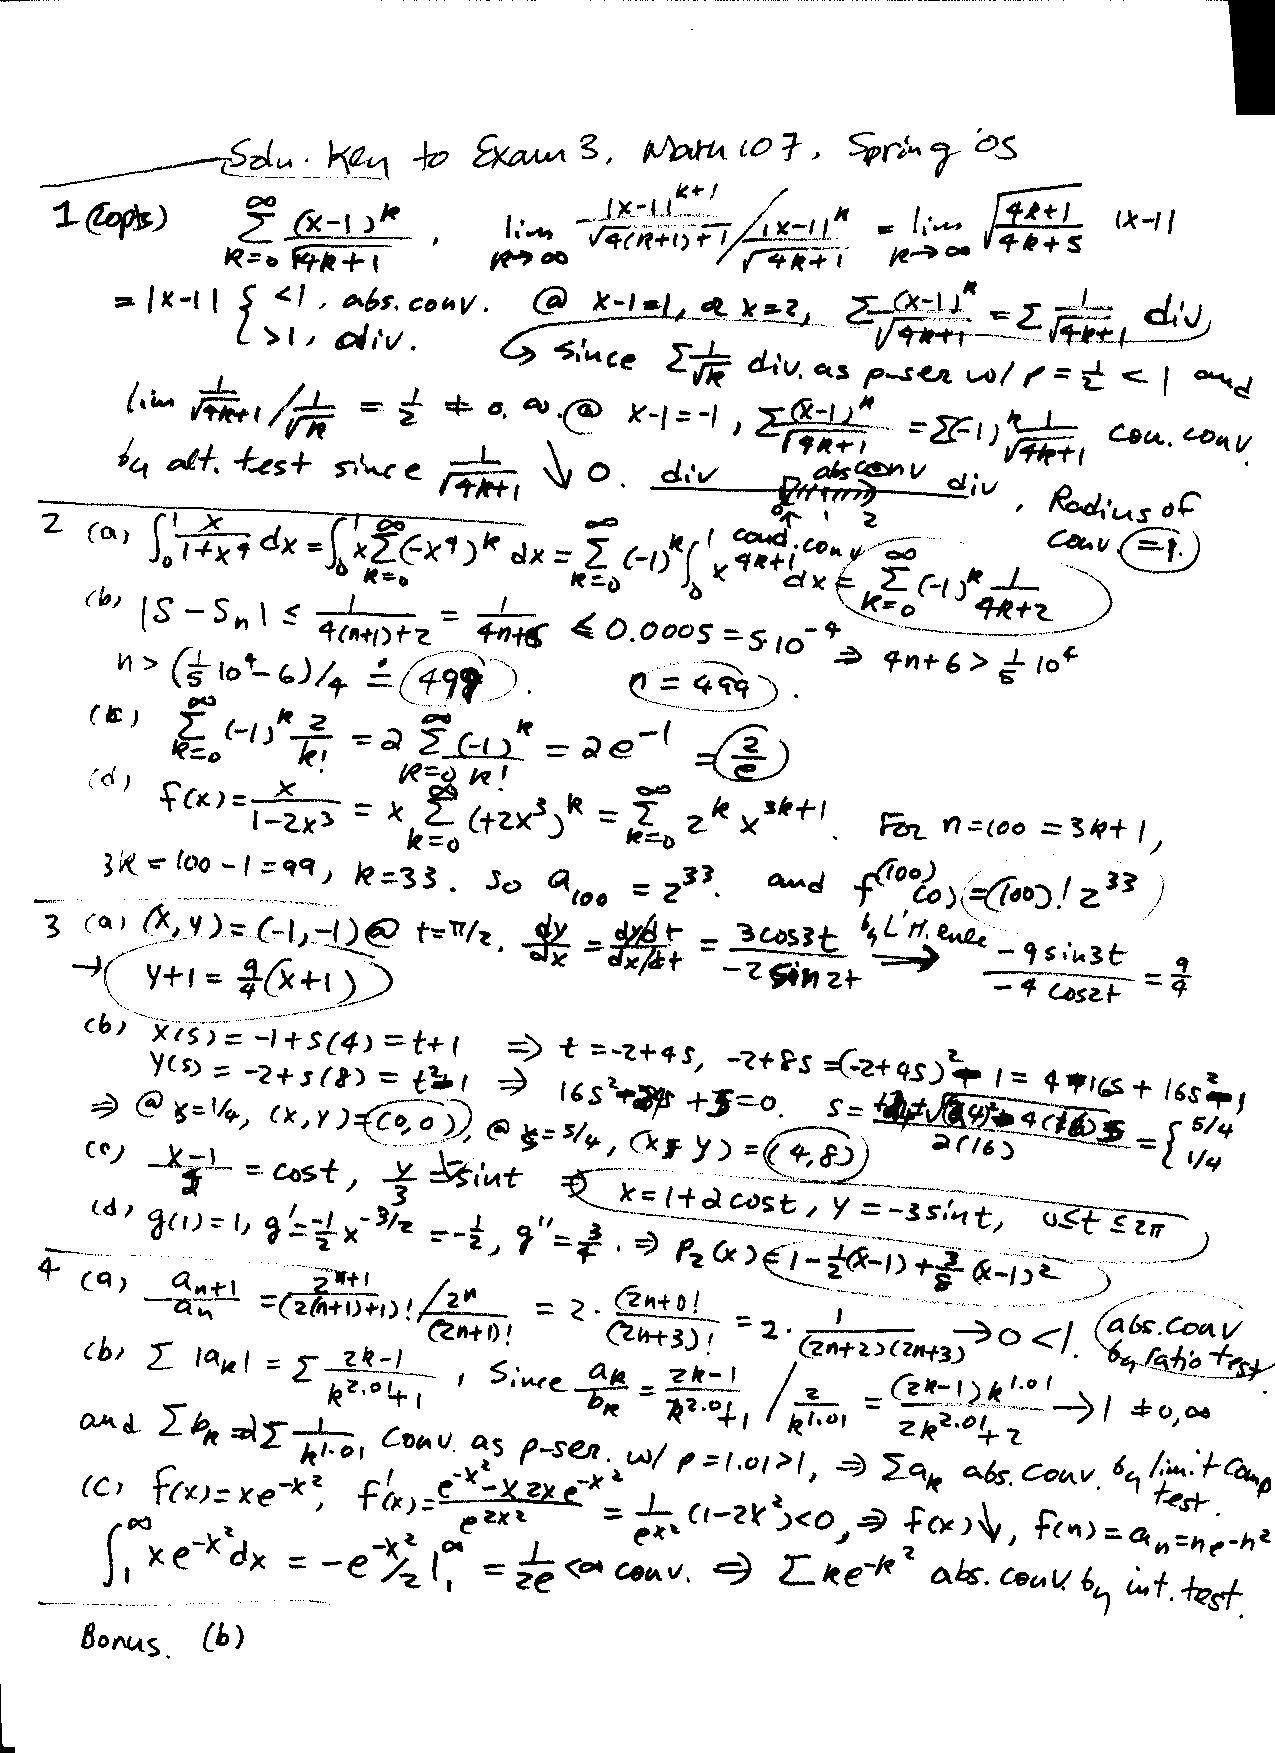 Soln. Key to Exam 3, Math 107, Spring '05
1 (20pts) ∑_{k=0}^∞ (x-1)^k/√(4k+1), lim_{k→∞} |x-1|^{k+1}/√(4(k+1)+1) / |x-1|^k/√(4k+1) = lim_{k→∞} √((4k+1)/(4k+5)) |x-1|
= |x-1| { <1, abs. conv. @ x-1=1, or x=2, ∑ (x-1)^k/√(4k+1) = ∑ 1/√(4k+1) div,
>1, div. ↪ since ∑ 1/√k div. as p-ser w/ p = 1/2 < 1 and
lim 1/√(4k+1) / 1/√k = 1/2 ≠ 0, ∞. @ x-1=-1, ∑ (x-1)^k/√(4k+1) = ∑(-1)^k 1/√(4k+1) con. conv.
by alt. test since 1/√(4k+1) ↓ 0. div abs conv div, Radius of
0 1 2 cond. conv conv =1.
2 (a) ∫_0^1 x/(1+x^4) dx = ∫_0^1 x ∑_{k=0}^∞ (-x^4)^k dx = ∑_{k=0}^∞ (-1)^k ∫_0^1 x^{4k+1} dx = ∑_{k=0}^∞ (-1)^k 1/(4k+2)
(b) |S - S_n| ≤ 1/(4(n+1)+2) = 1/(4n+6) ≤ 0.0005 = 5·10^{-4} ⇒ 4n+6 > 1/5 10^4
n > (1/5 10^4 - 6)/4 ≐ 499. n = 499.
(c) ∑_{k=0}^∞ (-1)^k 2/k! = 2 ∑_{k=0}^∞ (-1)^k/k! = 2e^{-1} = 2/e
(d) f(x) = x/(1-2x^3) = x ∑_{k=0}^∞ (+2x^3)^k = ∑_{k=0}^∞ 2^k x^{3k+1}. For n=100 = 3k+1,
3k = 100-1 = 99, k=33. So a_{100} = 2^{33}. and f^{(100)}(0) = (100)! 2^{33}
3 (a) (x,y) = (-1,-1) @ t=π/2. dy/dx = (dy/dt)/(dx/dt) = 3cos3t/(-2 sin 2t) by L'H. rule → -9 sin3t/(-4 cos2t) = 9/4
→ y+1 = 9/4(x+1)
(b) x(s) = -1+s(4) = t+1 ⇒ t = -2+4s, -2+8s = (-2+4s)^2 - 1 = 4 - 16s + 16s^2 - 1
y(s) = -2+s(8) = t^2-1 ⇒ 16s^2 - 24s + 5 = 0. s = (24 ± √((24)^2 - 4(16)5))/(2(16)) = { 5/4
1/4
⇒ @ s=1/4, (x,y) = (0,0), @ s=5/4, (x,y) = (4,8)
(c) (x-1)/2 = cost, y/3 = -sint ⇒ x = 1+2cost, y = -3sint, 0≤t≤2π
(d) g(1)=1, g' = -1/2 x^{-3/2} = -1/2, g'' = 3/4. ⇒ P_2(x) = 1 - 1/2(x-1) + 3/8 (x-1)^2
4 (a) a_{n+1}/a_n = 2^{n+1}/(2(n+1)+1)! / 2^n/(2n+1)! = 2 · (2n+1)!/(2n+3)! = 2 · 1/((2n+2)(2n+3)) → 0 < 1. abs. conv by ratio test
(b) ∑ |a_k| = ∑ (2k-1)/(k^{2.01}+1), Since a_k/b_k = (2k-1)/(k^{2.01}+1) / 2/k^{1.01} = (2k-1)k^{1.01}/(2k^{2.01}+2) → 1 ≠ 0, ∞
and ∑ b_k = 2∑ 1/k^{1.01} conv. as p-ser. w/ p = 1.01 > 1, ⇒ ∑ a_k abs. conv. by limit comp test.
(c) f(x) = xe^{-x^2}, f'(x) = (e^{-x^2} - x 2x e^{-x^2})/e^{2x^2} = 1/e^{x^2} (1-2x^2) < 0, ⇒ f(x) ↓, f(n) = a_n = ne^{-n^2}
∫_1^∞ xe^{-x^2} dx = -e^{-x^2}/2 |_1^∞ = 1/2e < ∞ conv. ⇒ ∑ ke^{-k^2} abs. conv. by int. test.
Bonus. (b)